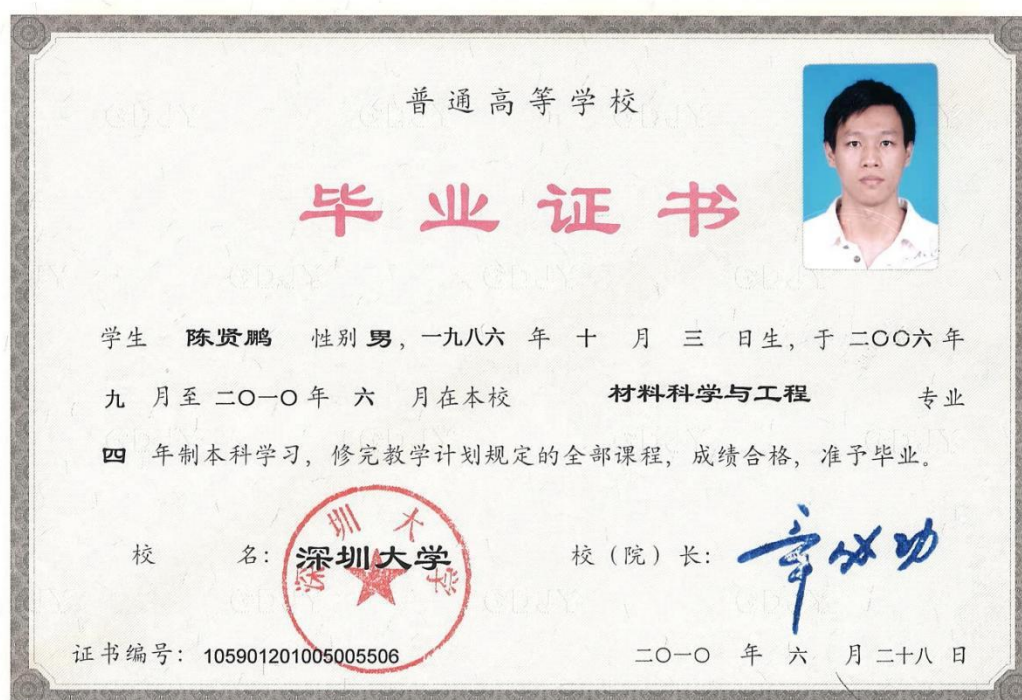 普通高等学校
毕业证书
学生 陈贤鹏 性别 男，一九八六 年 十 月 三 日生，于 二〇〇六 年
九 月至 二〇一〇 年 六 月在本校 材料科学与工程 专业
四 年制本科学习，修完教学计划规定的全部课程，成绩合格，准予毕业。
深圳大学
校 名：深圳大学 校（院）长：章必功
证书编号：105901201005005506 二〇一〇 年 六 月 二十八 日